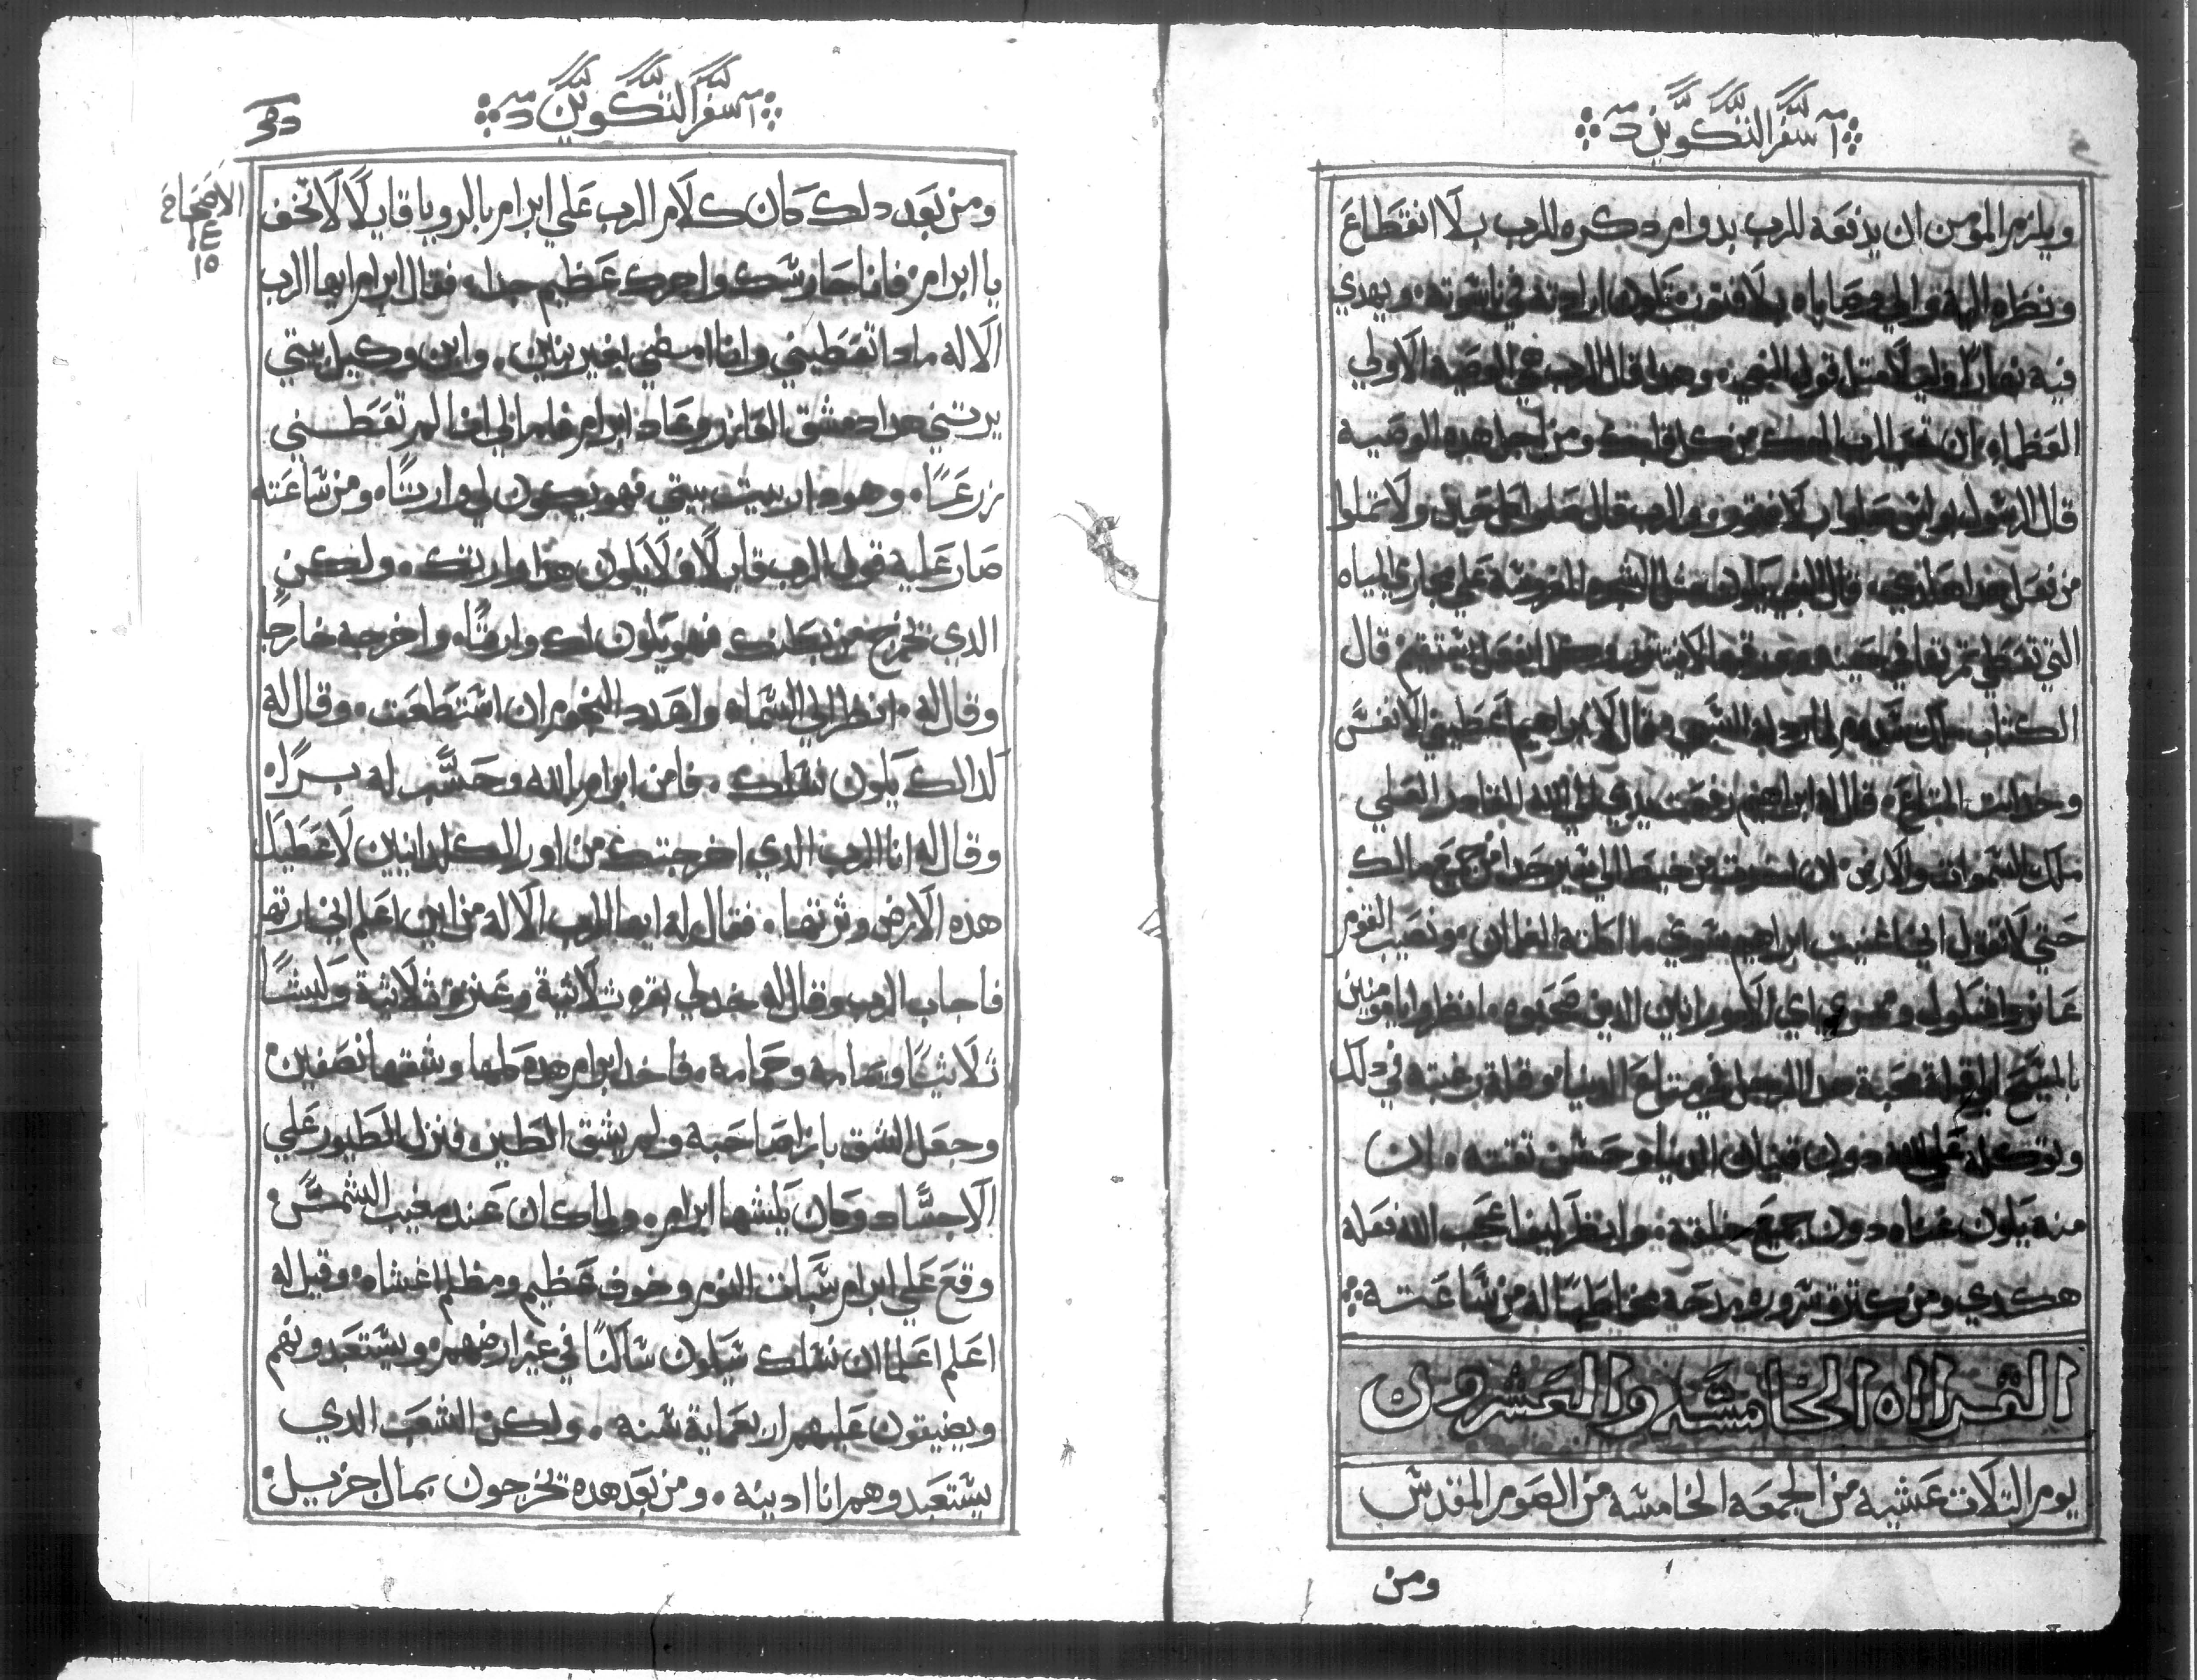 سفر التكوين
ويلزم المومن ان يدفعه للرب بدوام دكره للرب بلا انقطاع
ونظره اليه والي وصاياه بلا فتور تكون ارادته في ناسوته ويهدي
فيه نهارًا وليلًا مثل قول النبي وهدا قال الرب هي الوصية الاولي
العظماه ان تحب الرب الهك من كل قلبك ومن اجل هده الوصية
قال الرسول بولس صلوا بلا فتور والرب قال صلوا كل حين ولا تملوا
من فعل هدا هكدي قال النبي يكون مثل الشجره المغروسة علي مجاري المياه
التي تعطي تمرتها في حينه وورقها لا ينتتر وكل ما يفعل يستقيم قال
الكتاب ملك سدوم لما رد له السبي قال لابراهيم اعطيني الانفس
وخد انت المتاع قال له ابراهيم رفعت يدي الي الله القادر العلي
ملك السموات والارض ان اخدت من خيط الي سير حدا من جميع مالك
حتي لا تقول اني اغنيت ابراهيم سوي ما اكلته الغلمان ونصيب القوم
عانر واشكول وممري اي الامورانيين الدين صحبوه انظروا يا مومنين
بالمسيح الي قلة محبة هدا الرجل في متاع الدنيا وقلة رغبته في دلك
وتوكله علي الله دون قنيان الدنيا وحسن تقته لان
منه يكون غناه دون جميع خلقته وانظر ايضا عجب الله فعله
هكدي ومن كترة سروره مدحه مخاطبًا له من ساعته
القراه الخامسه والعشرون
يوم التلات عشية من الجمعه الخامسه من الصوم المقدس
ومن
سفر التكوين
الاصحاح
١٤
١٥
ومن بعد دلك كان كلام الرب علي ابرام بالرويا قايلًا لا تخف
يا ابرام فانا حاوشك واجرك عظيم جدا فقال ابرام ايها الرب
الاله مادا تعطيني وانا امضي بغير بنين وابن وكيل بيتي
يرتني هدا دمشق العازر وعاد ابرام فلما اني انا لم تعطيني
زرعًا وهودا ربيت بيتي فهو يكون لي وارتًا ومن ساعته
صار عليه قول الرب قايلًا لا يكون هدا وارتك ولكن
الدي تخرج من بطنك فهو يكون لك وارتًا واخرجه خارجا
وقال له انظر الي السماء واعدد النجوم ان استطعت وقال له
كدالك يكون نسلك فامن ابرام بالله وحسب له برًا
وقال له انا الرب الدي اخرجتك من اور الكلدانيين لاعطيك
هده الارض وترتها فقال له ايها الرب الاله من اين اعلم اني ارتها
فاجاب الرب وقال له خد لي بقره تلاتية وعنزه تلاتية وكبشًا
تلاتيًا ويمامه وحمامه فاخد ابرام هده كلها وشقها نصفين
وجعل الشق بازا صاحبه ولم يشق الطير فنزل الطيور علي
الاجساد وكان يكشها ابرام ولما كان عند مغيب الشمس
وقع علي ابرام سبات النوم وخوف عظيم ومظلم اغشاه وقيل له
اعلم اعلما ان نسلك سيكون ساكنًا في غير ارضهم ويستعبدونهم
ويضيقون عليهم اربعماية سنه ولكن الشعب الدي
يستعبدوهم انا ادينه ومن بعد هده تخرجون بمال جزيل